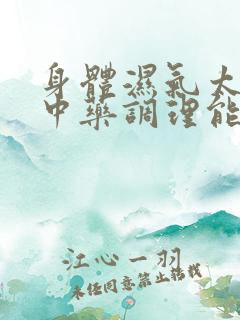 身體濕氣太
中藥調理能
江心一羽
未经同意禁止转载